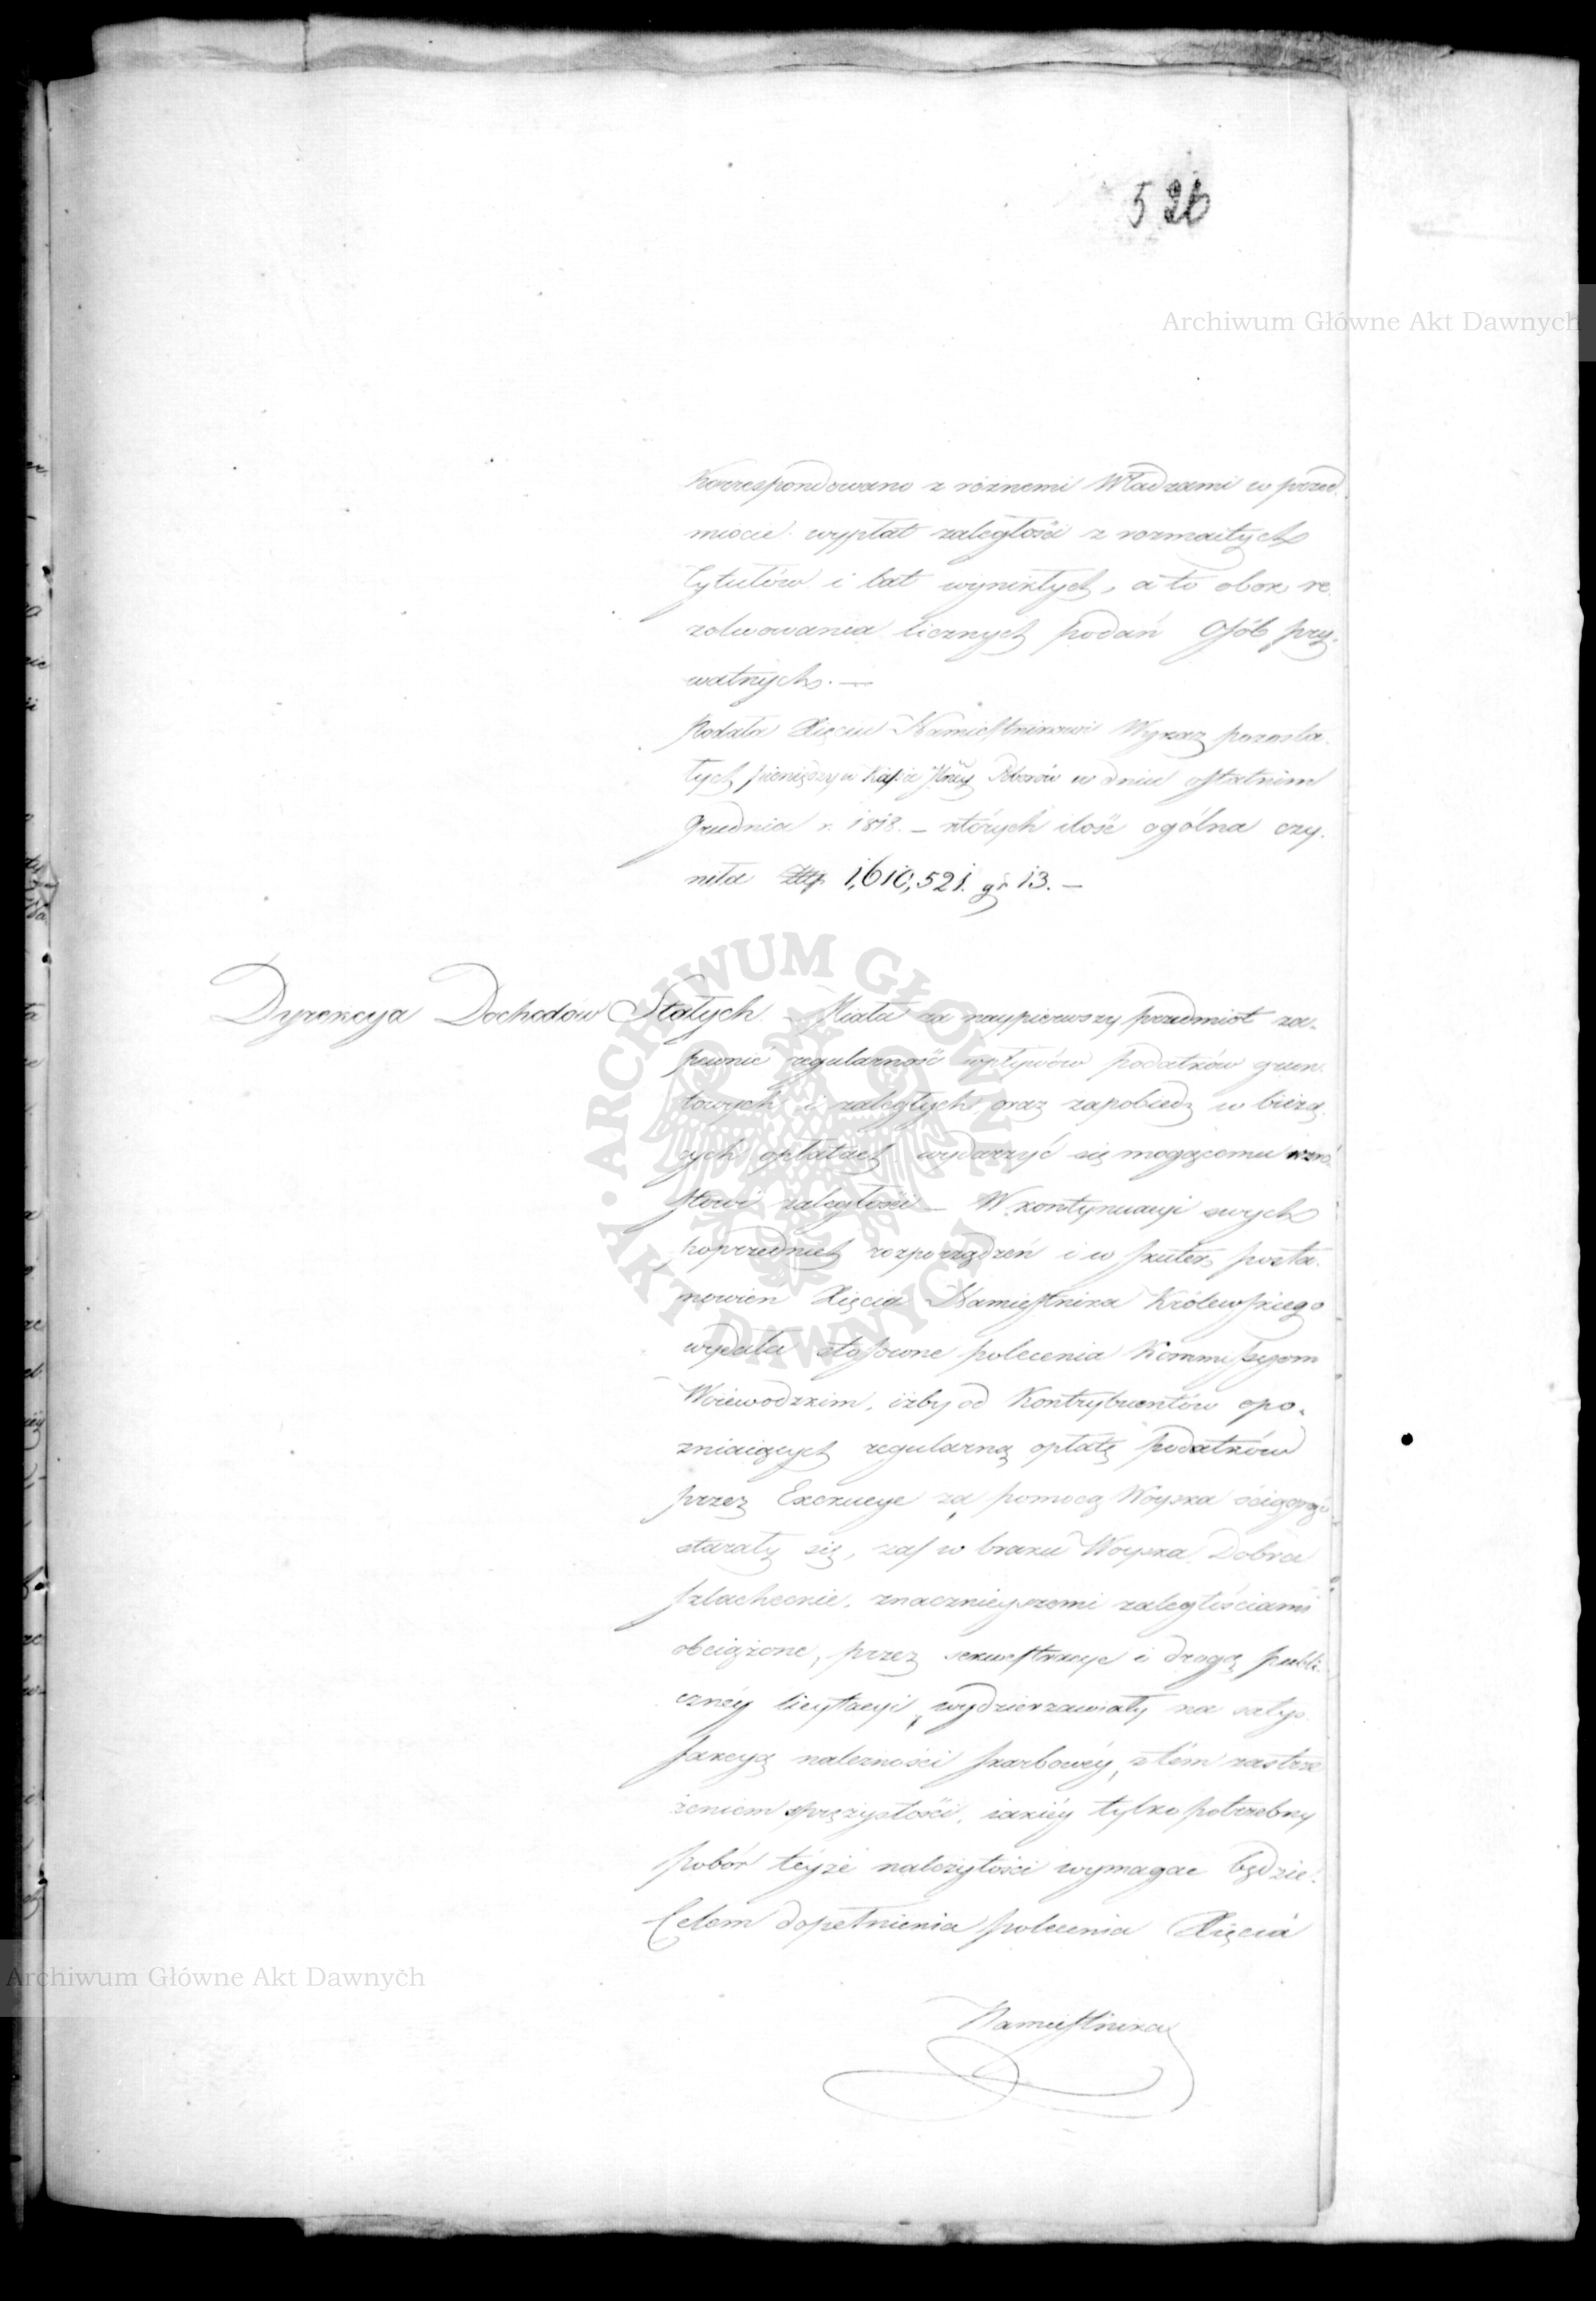 526
Archiwum Główne Akt Dawnych
Korrespondowano z róznemi Władzami w przed-
miocie wypłat zaległości z rozmaitych
Tytułów i lat wynikłych, a to obok re-
zolwowania licznych podań Osób pry-
watnych. —
Podała Xięciu Namiestnikowi Wykaz pozosta-
łych pieniędzy w Kassie Poborów w dniu ostatnim
Grudnia r. 1818. — których ilość ogólna czy-
niła Złp 1,610,521. gr 13. —
Dyrekcya Dochodów Stałych. — Miała za naypierwszy przedmiot za-
pewnić regularność wpływów podatków grun-
towych i zaległych, oraz zapobiedz w bieżą-
cych opłatach wydarzyć się mogącemu wzro-
stowi zaległości — W kontynuacyi swych
poprzednich rozporządzeń i w skutek posta-
nowień Xięcia Namiestnika Królewskiego
wydała stosowne polecenia Kommissyom
Woiewodzkim, iżby od Kontrybuentów opo-
zniaiących regularną opłatę podatków
przez Exekucye za pomocą Woyska ściągać
starały się, zaś w braku Woyska, Dobra
szlacheckie, znacznieyszemi zaległościami
obciążone, przez sekwestracye i drogą publi-
cznéy licytacyi wydzierzawiały na satys-
fakcyą należności skarbowéy, z tém zastrze-
żeniem sprężystości, iakiéy tylko potrzebny
pobór téyże należytości wymagac będzie.
Celem dopełnienia polecenia Xięcia
Namiestnika
ARCHIWUM GŁÓWNE AKT DAWNYCH
Archiwum Główne Akt Dawnych